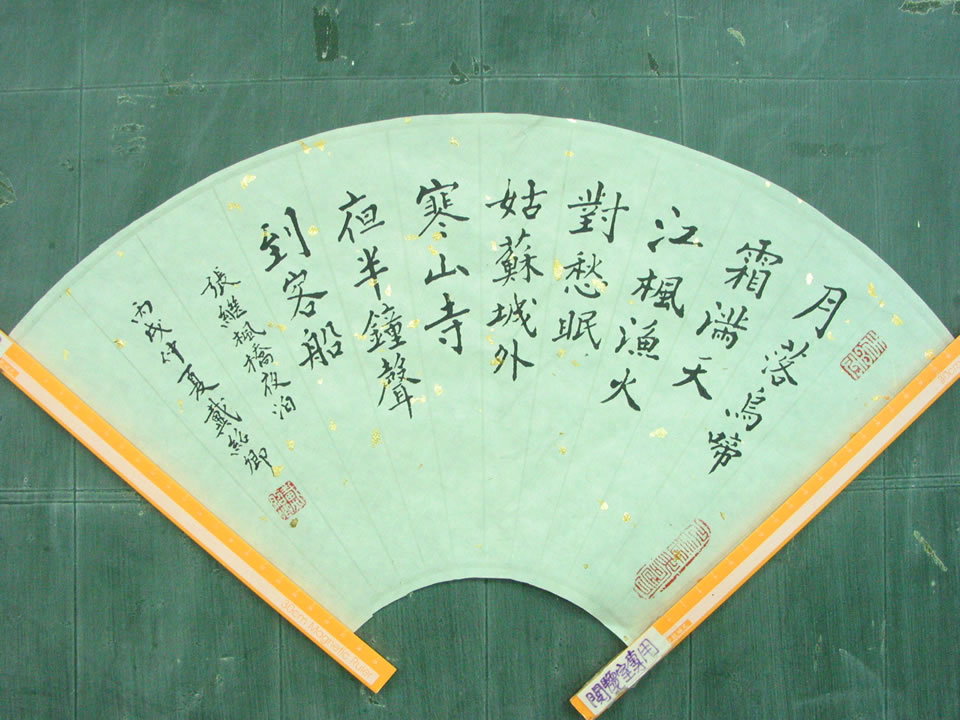 月落烏啼
霜滿天
江楓漁火
對愁眠
姑蘇城外
寒山寺
夜半鐘聲
到客船
張継楓橋夜泊
丙戌仲夏戴卿
30cm Magnetic Ruler
閱覽室專用